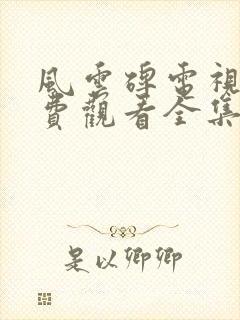 風雲碑電視
費觀看全集
是以卿卿